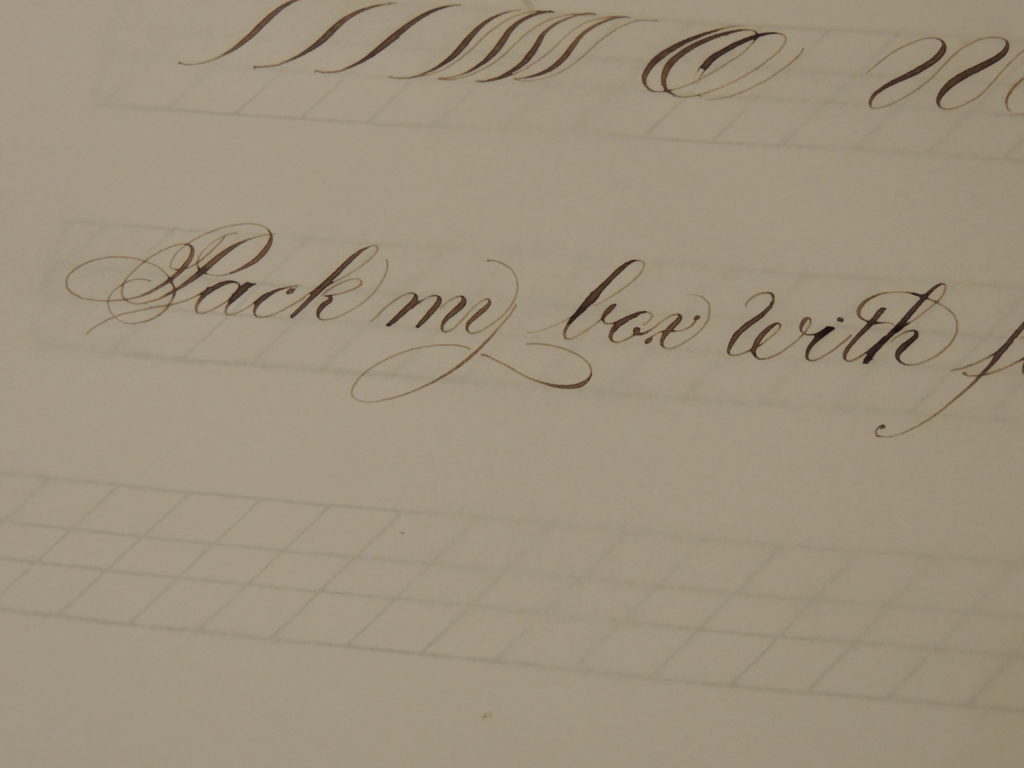 Pack my box with